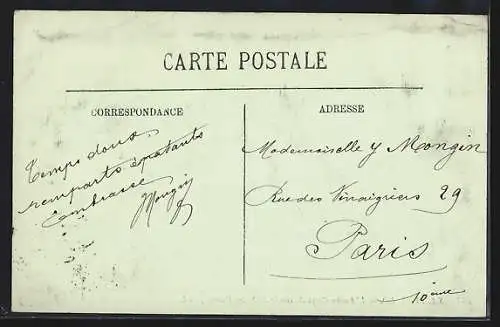 CARTE POSTALE
CORRESPONDANCE
ADRESSE
Temps doux
remparts épatants
Embrasse
Mongin
Mademoiselle Y Mongin
Rue des Vinaigriers 29
Paris
10ème